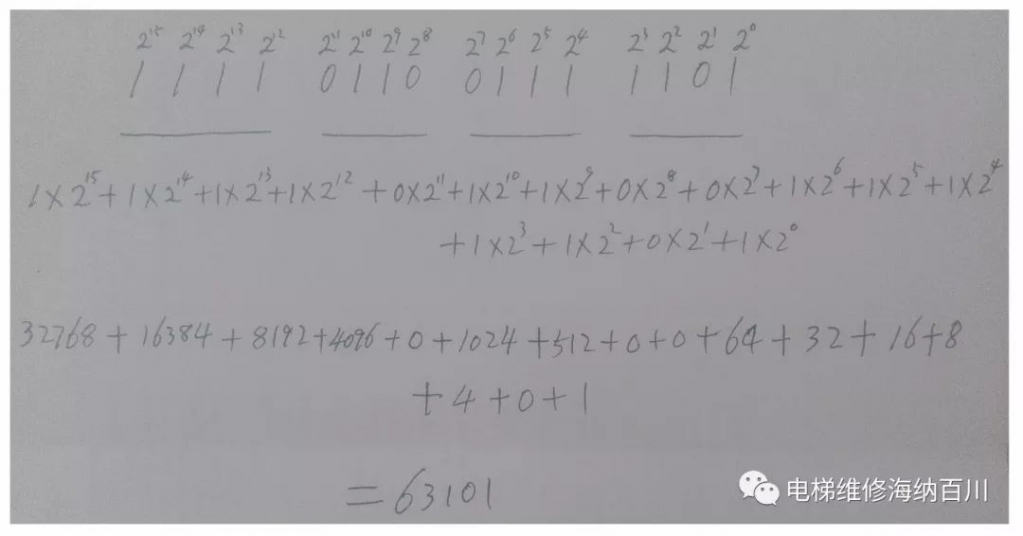 2¹⁵ 2¹⁴ 2¹³ 2¹² 2¹¹ 2¹⁰ 2⁹ 2⁸ 2⁷ 2⁶ 2⁵ 2⁴ 2³ 2² 2¹ 2⁰
1 1 1 1 0 1 1 0 0 1 1 1 1 1 0 1
1×2¹⁵+1×2¹⁴+1×2¹³+1×2¹²+0×2¹¹+1×2¹⁰+1×2⁹+0×2⁸+0×2⁷+1×2⁶+1×2⁵+1×2⁴
+1×2³+1×2²+0×2¹+1×2⁰
32768+16384+8192+4096+0+1024+512+0+0+64+32+16+8
+4+0+1
=63101
电梯维修海纳百川